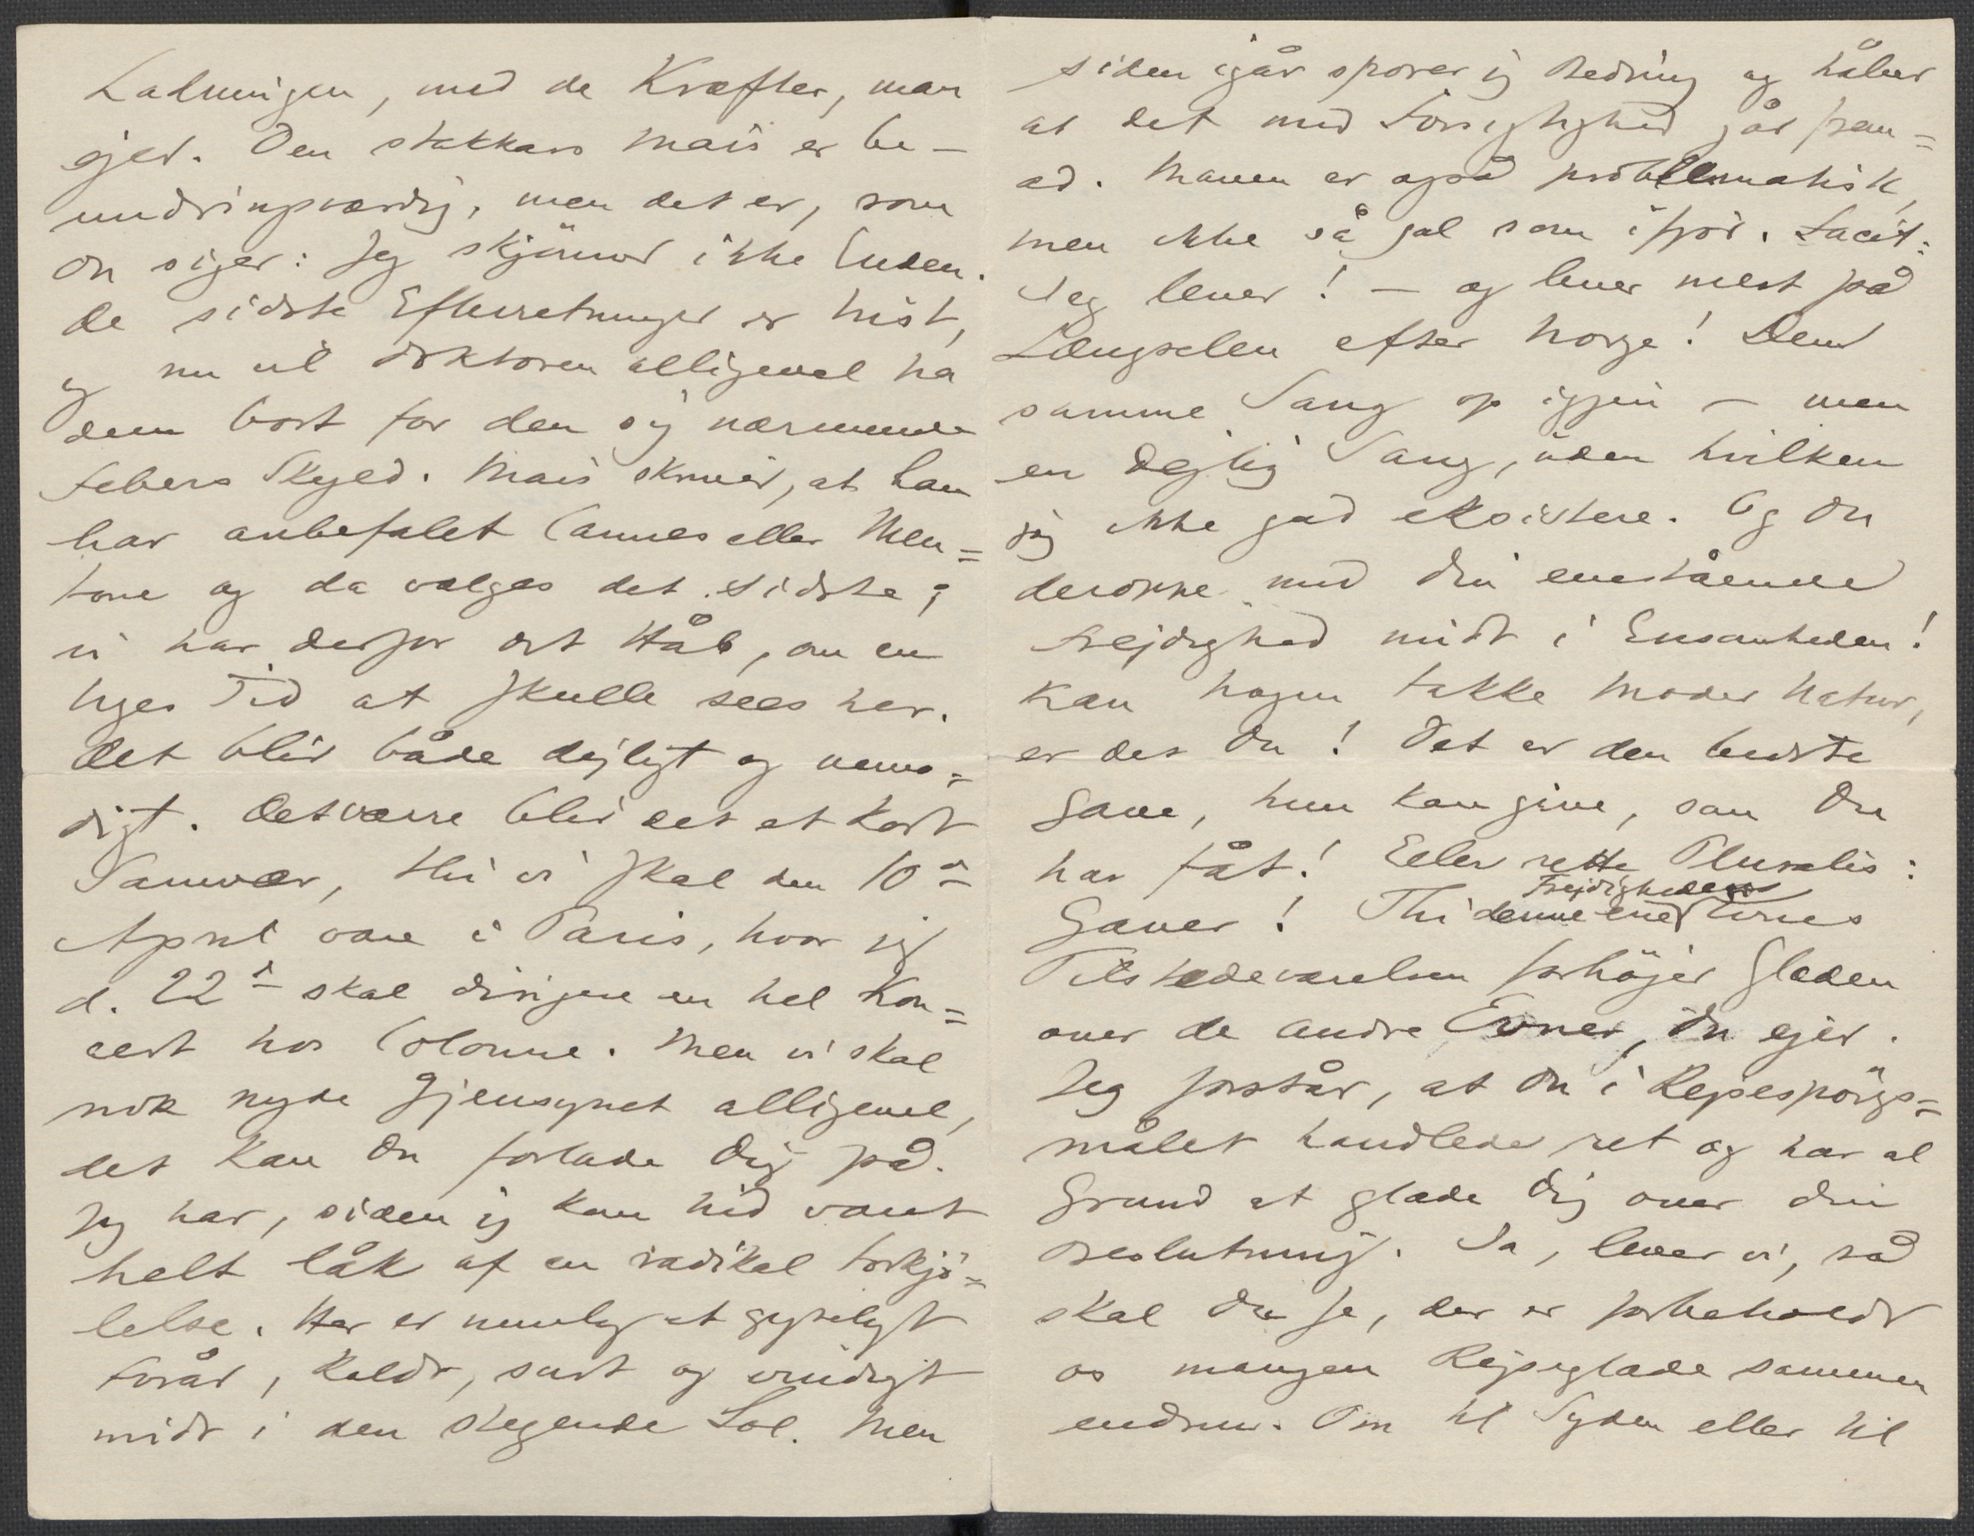 Ladningen, med de Kræfter, man
ejer. Den stakkars Mais er be-
undringsværdig, men det er, som
Du siger: Jeg skjönner ikke Enden.
De sidste Efterretninger er trist,
og nu vil Doktoren alligevel ha
dem bort for den sig nærmende
Febers Skyld. Mais skriver, at han
har anbefalet Cannes eller Men=
tone og da vælges det sidste;
vi har derfor det Håb, om en
Uges Tid at skulle sees her.
Det blir både dejligt og vemo=
digt. Desværre blir det et kort
Samvær, thi vi skal den 10de
April være i Paris, hvor jeg
d. 22de skal dirigere en hel Kon=
cert hos Colonne. Men vi skal
nok nyde Gjensynet alligevel,
det kan Du forlade Dig på.
Jeg har, siden jeg kom hid været
helt låk af en radikal Forkjö=
lelse. Her er nemlig et gyseligt
Forår, koldt, surt og vindigt
midt i den stegende Sol. Men
siden igår sporer jeg Bedring og håber
at det med Forsigtighed går frem=
ad. Maven er også problematisk,
men ikke så gal som ifjor. Facit:
Jeg lever! – og lever mest på
Længselen efter Norge! Den
samme Sang op igjen – men
en dejlig Sang, uden hvilken
jeg ikke gad eksistere. Og Du
deroppe med din enestående
Frejdighed midt i Ensomheden!
Kan nogen takke Moder Natur,
er det Du! Det er den bedste
Gave, hun kan give, som Du
har fåt! Eller rette Pluralis:
Gaver! Thi denne ene
Frejdighedens
Tilstedeværelsen forhöjer Glæden
over de andre Evner, Du ejer.
Jeg forstår, at Du i Rejsespörgs=
målet handlede ret og har al
Grund at glæde Dig over din
Beslutning. Ja, lever vi, så
skal Du se, der er forbeholdt
os mangen Rejseglæde sammen
endnu. Om til Syden eller til